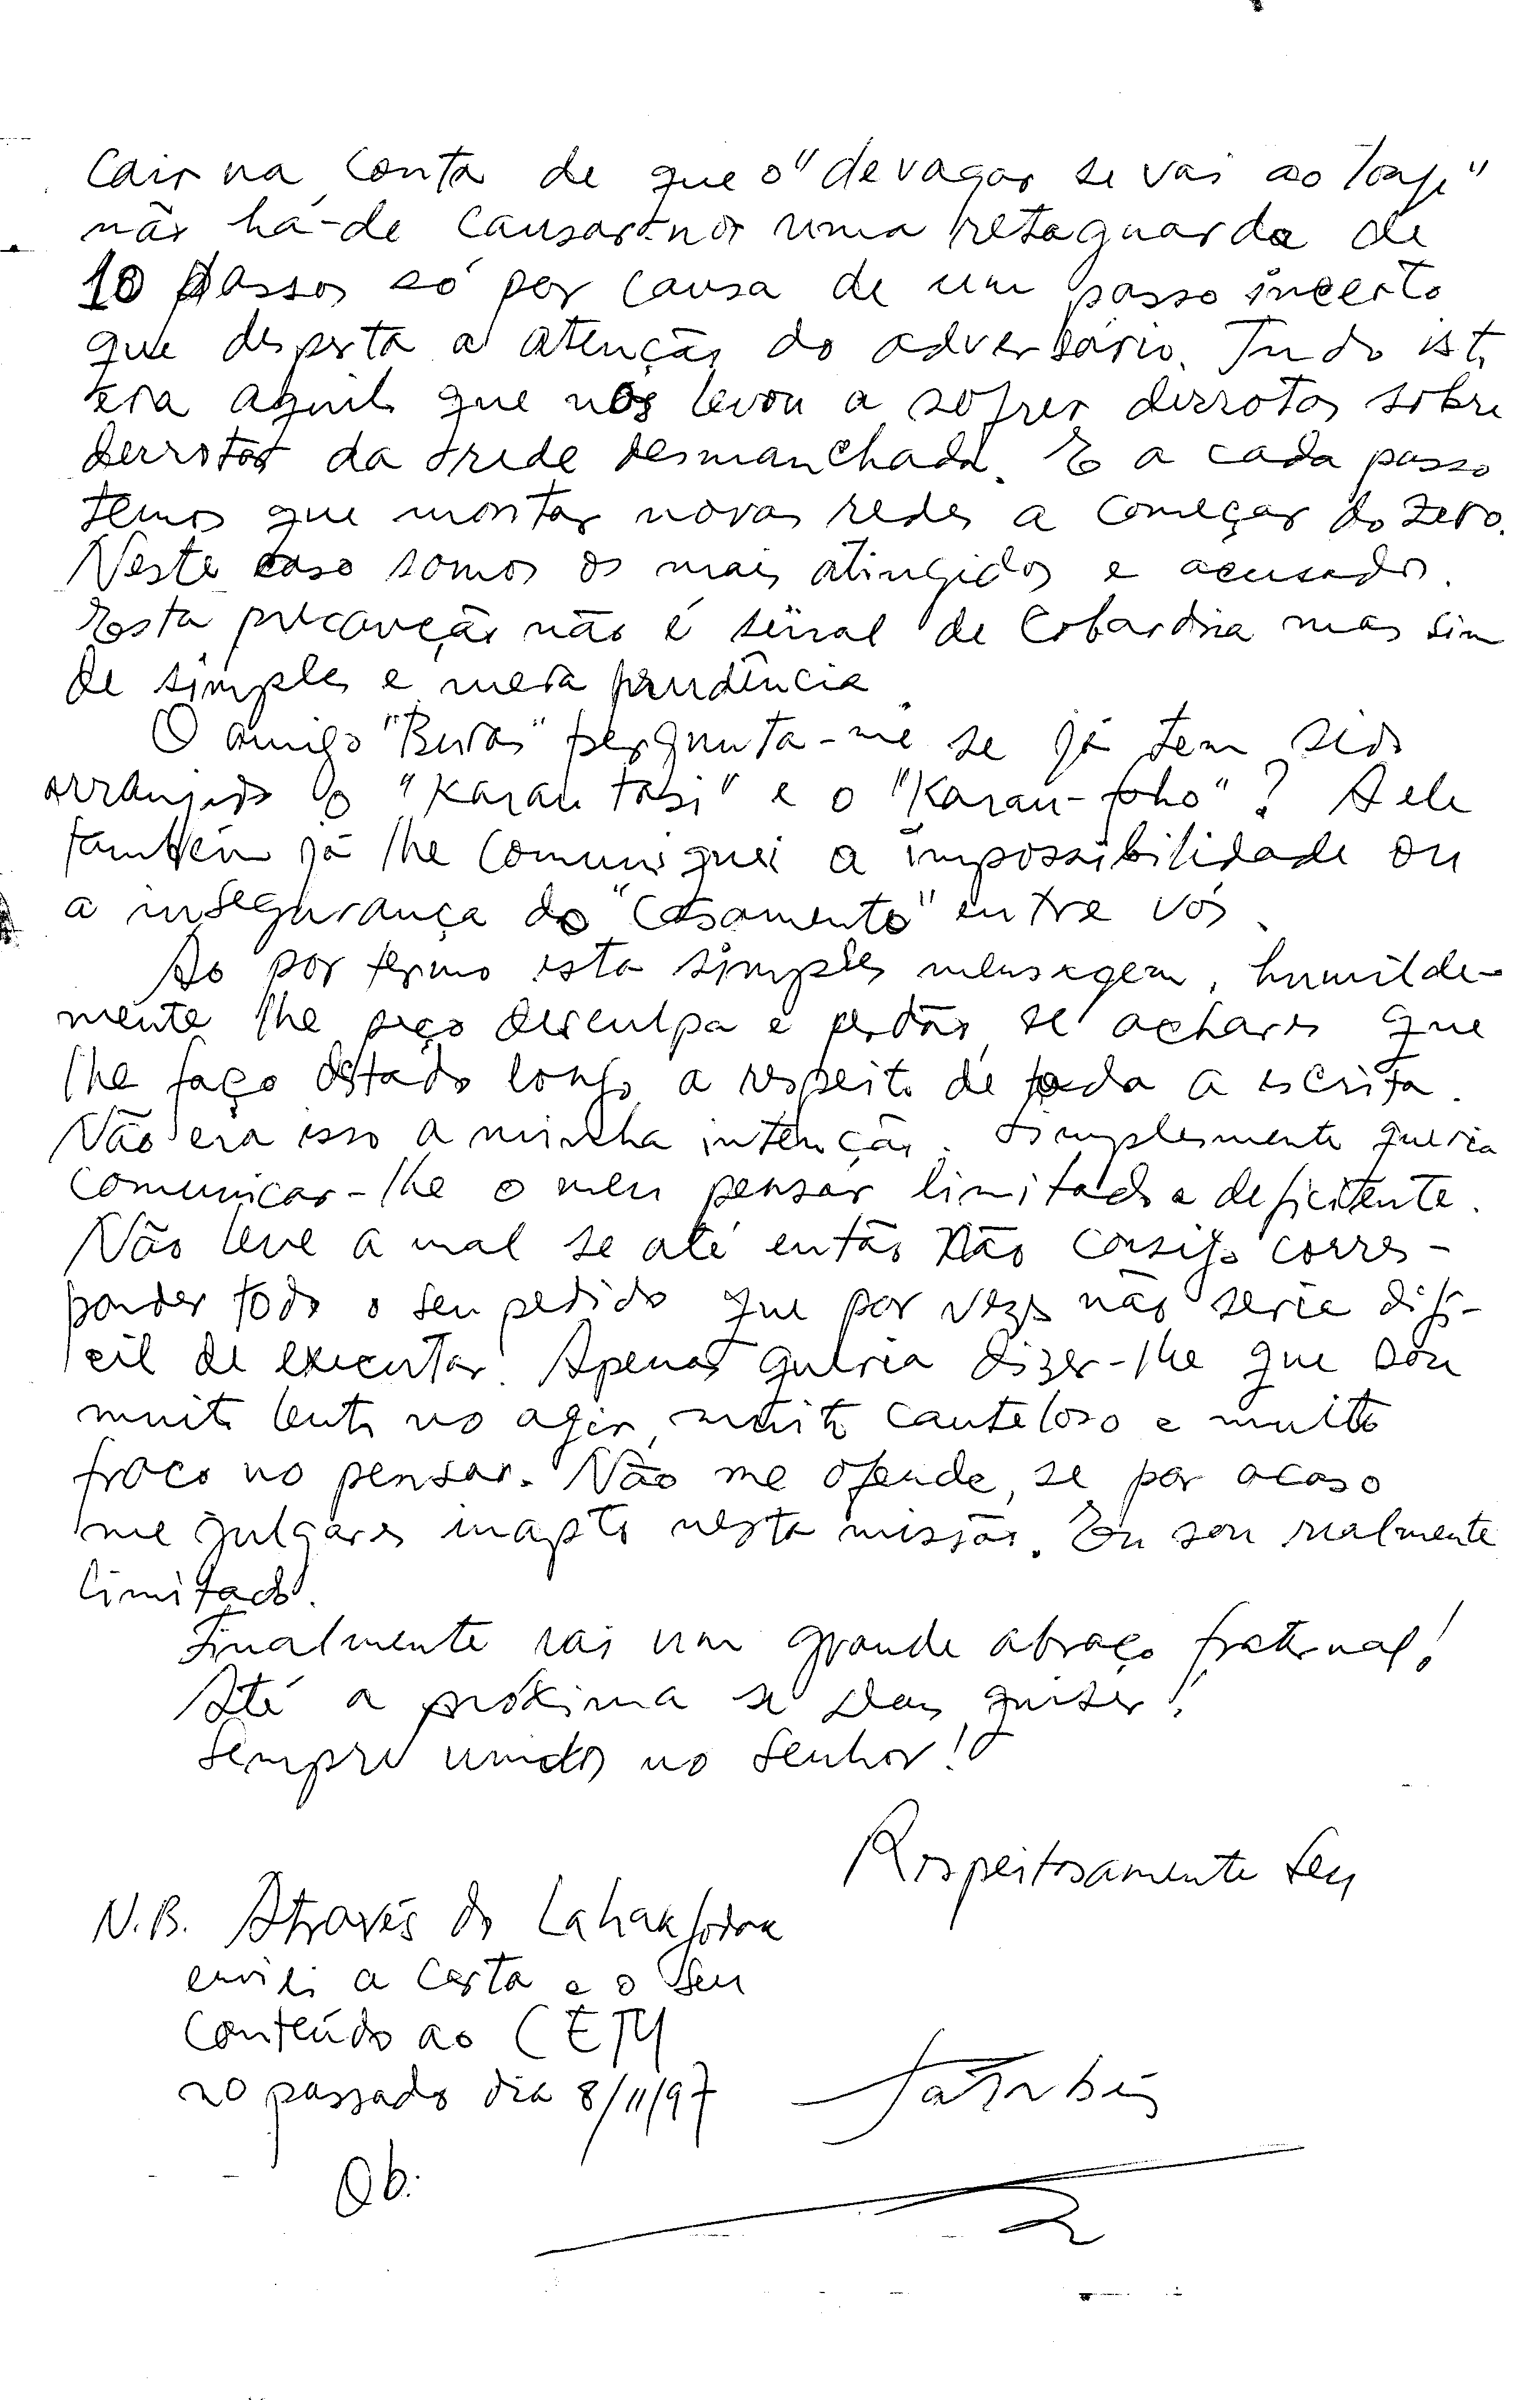 Cair na conta de que o "devagar se vai ao longe"
não há-de causar-nos uma retaguarda de
10 passos só por causa de um passo incerto
que desperta a atenção do adversário. Tudo isto
era aquilo que nos levou a sofrer derrotas sobre
derrotas da rede desmanchada. E a cada passo
temos que montar novas redes a começar do zero.
Neste caso somos os mais atingidos e acusados.
Esta precaução não é sinal de cobardia mas sim
de simples e mera prudência.
O amigo "Buras" pergunta-me se já tem sido
arranjado o "Karau tasi" e o "Karau-foho"? A ele
também já lhe comuniquei a impossibilidade ou
a insegurança do "casamento" entre vós.
Ao por termo esta simples mensagem, humilde-
mente lhe peço desculpa e perdão, se achares que
lhe faço estado longo a respeito de toda a escrita.
Não era isso a minha intenção. Simplesmente queria
comunicar-lhe o meu pensar limitado e deficiente.
Não leve a mal se até então não consigo corres-
ponder todo o seu pedido que por vezes não seria difí-
cil de executar. Apenas queria dizer-lhe que sou
muito lento no agir, muito cauteloso e muito
fraco no pensar. Não me ofende, se por acaso
me julgares inapto nesta missão. Eu sou realmente
limitado.
Finalmente vai um grande abraço fraternal!
Até a próxima se Deus quiser!
Sempre unidos no Senhor!
Respeitosamente Seu
N.B. Através do Lahakfodak
enviei a carta e o seu
conteúdo ao CETY
no passado dia 8/11/97
Ob.